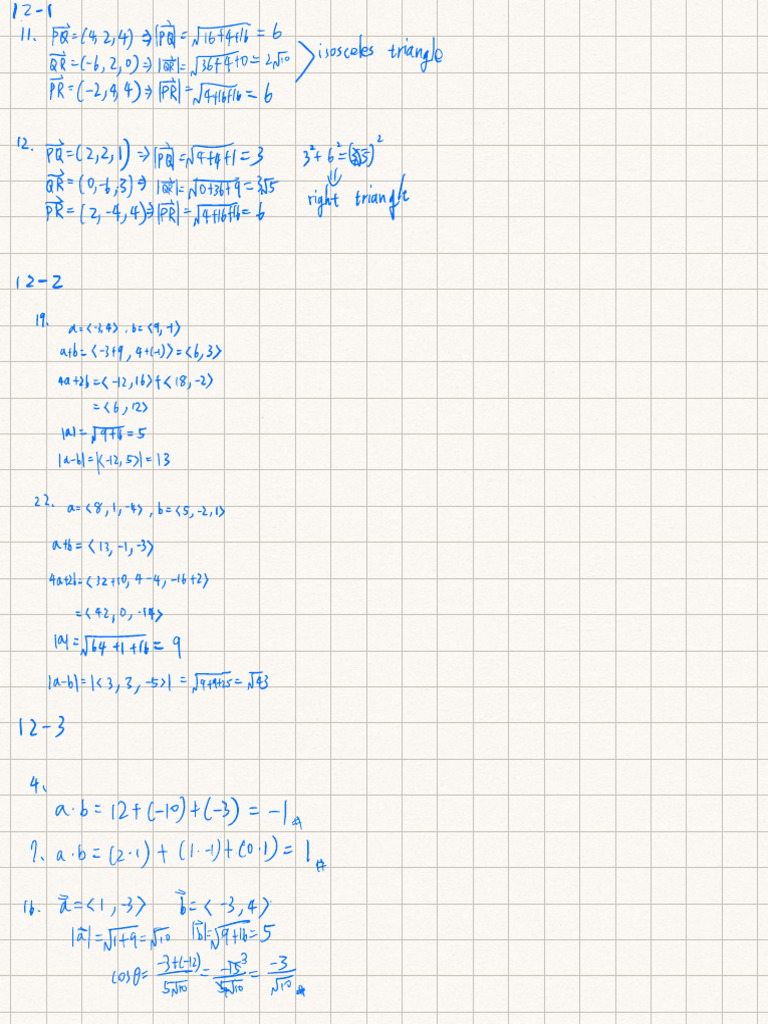 12-1
11. PQ⃗=(4,2,4) ⇒ |PQ⃗|=√(16+4+16) = 6
QR⃗=(-6,2,0) ⇒ |QR⃗|=√(36+4+0) = 2√10
PR⃗=(-2,4,4) ⇒ |PR⃗|=√(4+16+16) = 6
isosceles triangle
12. PQ⃗=(2,2,1) ⇒ |PQ⃗|=√(4+4+1) = 3
QR⃗=(0,-6,3) ⇒ |QR⃗|=√(0+36+9) = 3√5
PR⃗=(2,-4,4) ⇒ |PR⃗|=√(4+16+16) = 6
3²+6²=(3√5)²
⇓
right triangle
12-2
19. a=<-3,4>, b=<9,-1>
a+b=<-3+9, 4+(-1)>=<6,3>
4a+2b=<-12,16>+<18,-2>
=<6,12>
|a|=√(9+16)=5
|a-b|=|<-12,5>|=13
22. a=<8,1,-4>, b=<5,-2,1>
a+b=<13,-1,-3>
4a+2b=<32+10, 4-4, -16+2>
=<42,0,-14>
|a|=√(64+1+16)=9
|a-b|=|<3,3,-5>|=√(9+9+25)=√43
12-3
4.
a·b=12+(-10)+(-3)=-1#
7. a·b=(2·1)+(1·-1)+(0·1)=1#
16. a⃗=<1,-3> b⃗=<-3,4>
|a⃗|=√(1+9)=√10 |b⃗|=√(9+16)=5
cosθ=(-3+(-12))/(5√10)=-15 3/(5√10)=-3/√10#